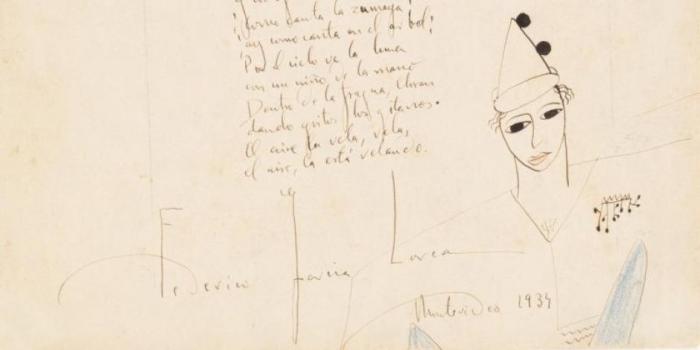 ¡Cómo canta la zumaya!
¡ay como canta en el arbol!
Por el cielo va la luna
con un niño de la mano
Dentro de la fragua lloran,
dando gritos, los gitanos.
El aire la vela, vela,
el aire, la está velando.
Federico García Lorca
Montevideo 1934